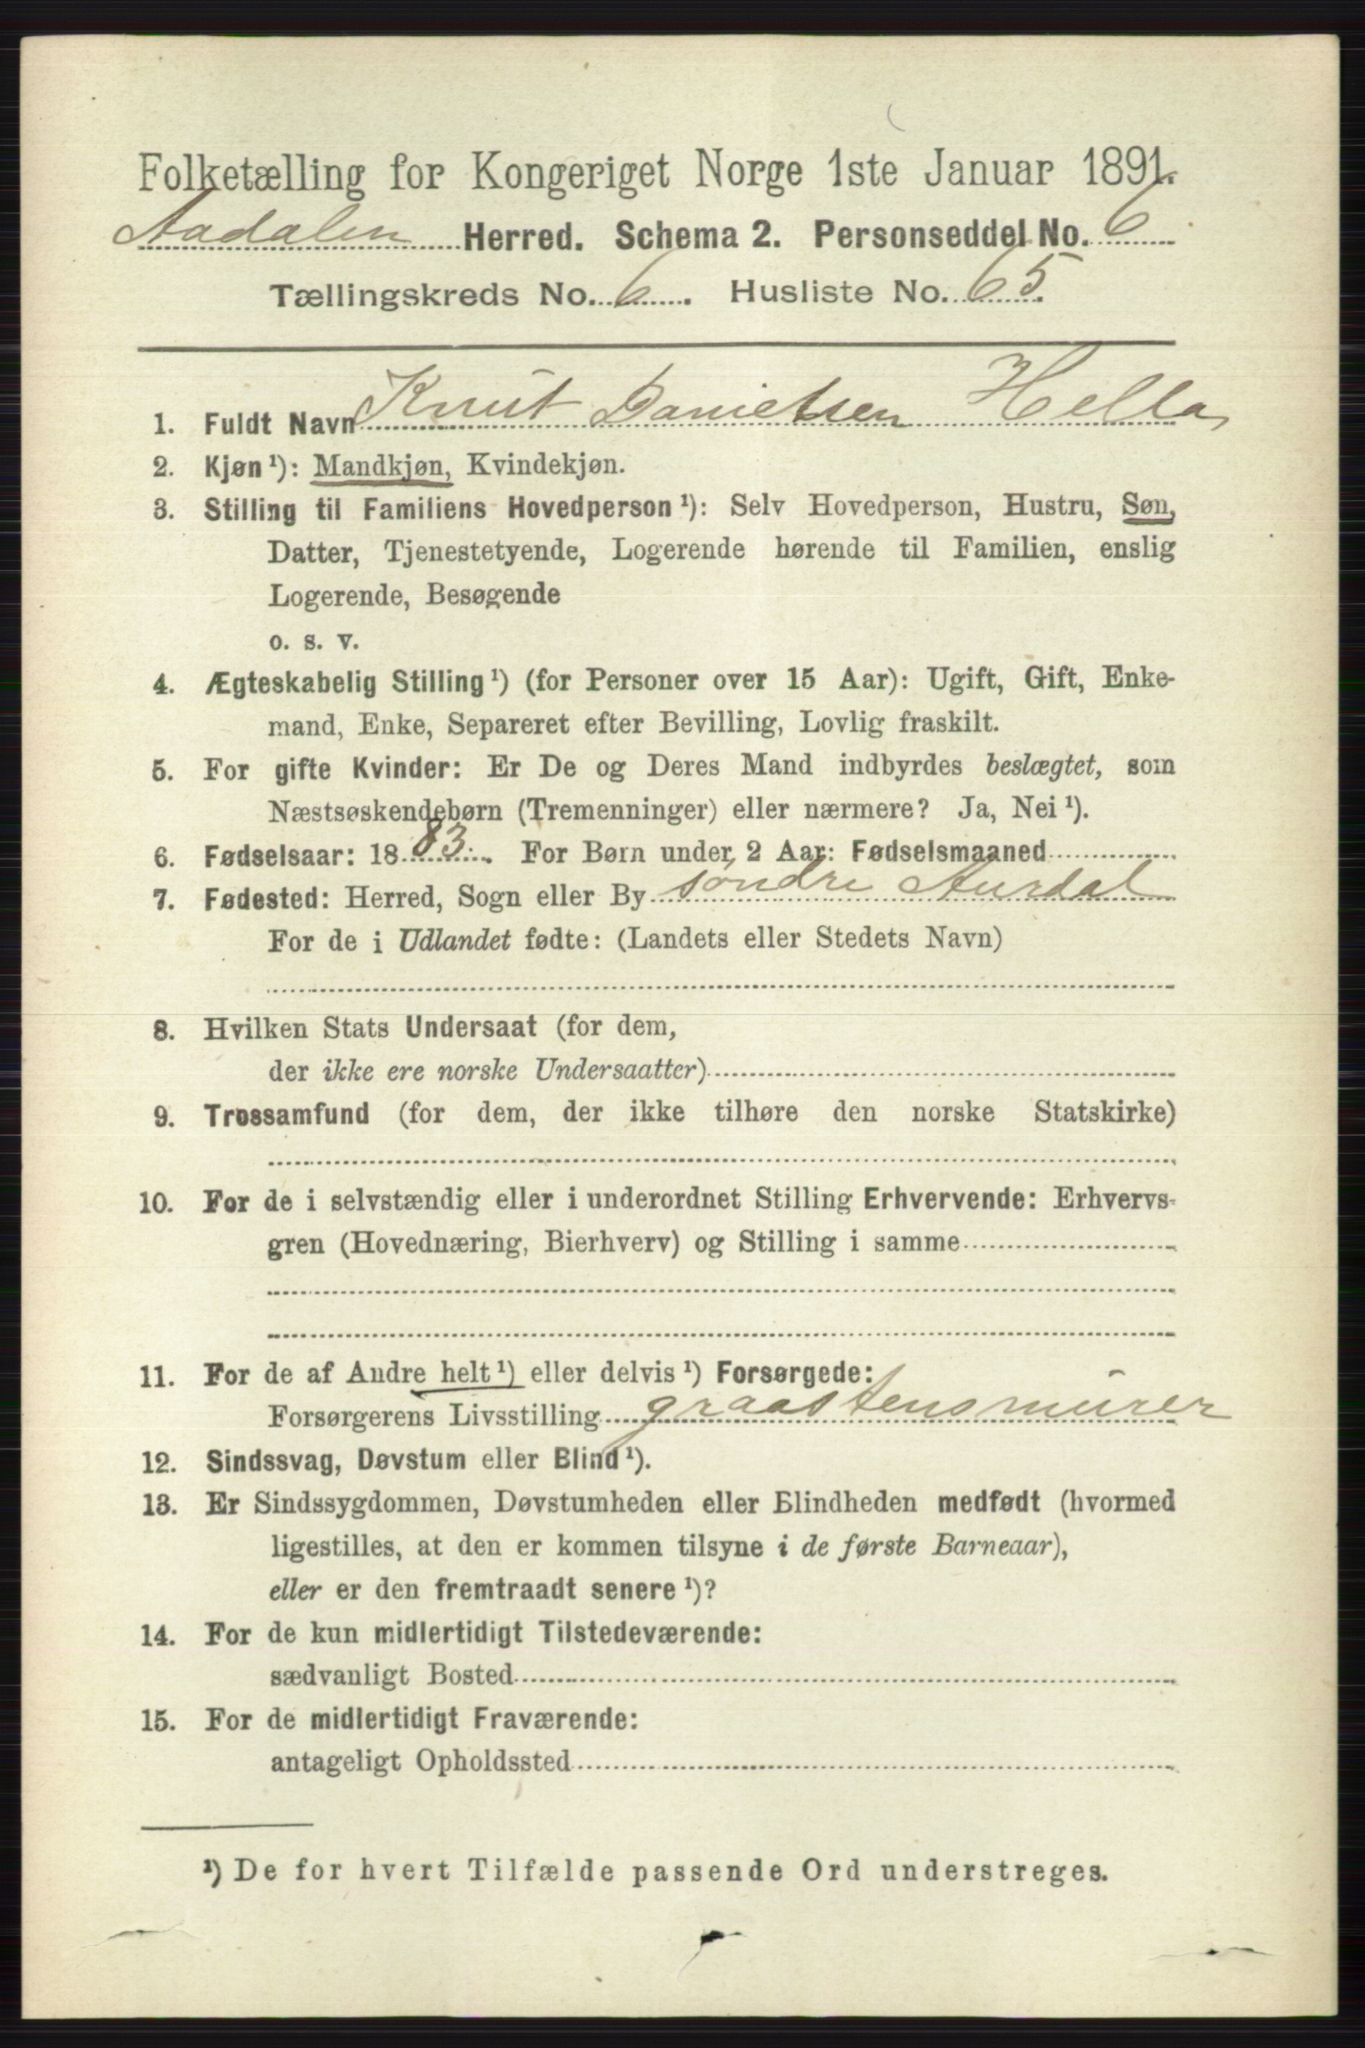 Folketælling for Kongeriget Norge 1ste Januar 1891.
Aadalen Herred. Schema 2. Personseddel No. 6
Tællingskreds No. 6. Husliste No. 65.
1. Fuldt Navn Knut Danielsen Hella,
2. Kjøn¹): Mandkjøn, Kvindekjøn.
3. Stilling til Familiens Hovedperson¹): Selv Hovedperson, Hustru, Søn,
Datter, Tjenestetyende, Logerende hørende til Familien, enslig
Logerende, Besøgende
o. s. v.
4. Ægteskabelig Stilling¹) (for Personer over 15 Aar): Ugift, Gift, Enke-
mand, Enke, Separeret efter Bevilling, Lovlig fraskilt.
5. For gifte Kvinder: Er De og Deres Mand indbyrdes beslægtet, som
Næstsøskendebørn (Tremenninger) eller nærmere? Ja, Nei¹).
6. Fødselsaar: 1883. For Børn under 2 Aar: Fødselsmaaned
7. Fødested: Herred, Sogn eller By søndre Aurdal
For de i Udlandet fødte: (Landets eller Stedets Navn)
8. Hvilken Stats Undersaat (for dem,
der ikke ere norske Undersaatter)
9. Trossamfund (for dem, der ikke tilhøre den norske Statskirke)
10. For de i selvstændig eller i underordnet Stilling Erhvervende: Erhvervs-
gren (Hovednæring, Bierhverv) og Stilling i samme
11. For de af Andre helt¹) eller delvis¹) Forsørgede:
Forsørgerens Livsstilling graastensmurer
12. Sindssvag, Døvstum eller Blind¹).
13. Er Sindssygdommen, Døvstumheden eller Blindheden medfødt (hvormed
ligestilles, at den er kommen tilsyne i de første Barneaar),
eller er den fremtraadt senere¹)?
14. For de kun midlertidigt Tilstedeværende:
sædvanligt Bosted
15. For de midlertidigt Fraværende:
antageligt Opholdssted
¹) De for hvert Tilfælde passende Ord understreges.